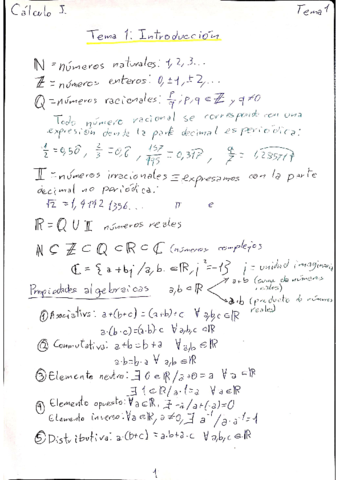 Cálculo I. Tema 1
Tema 1: Introducción
N = números naturales: 1, 2, 3...
Z = números enteros: 0, ±1, ±2, ...
Q = números racionales: p/q; p, q ∈ Z y q≠0
Todo número racional se corresponde con una
expresión donde la parte decimal es periódica:
1/2 = 0,5
I = números irracionales ≡ expresamos con la parte
decimal no periódica:
√2 = 1,4142 π e
R = Q ∪ I números reales
N ⊊ Z ⊂ Q ⊂ R ⊂ C (números complejos)
C = {a + bj / a, b ∈ R, j² = -1} j = unidad imaginaria
Propiedades algebraicas a, b ∈ R
a+b (suma de números reales)
a·b (producto de números reales)
① Asociativa: a+(b+c) = (a+b)+c ∀ a,b,c ∈ R
a·(b·c) = (a·b)·c ∀ a,b,c ∈ R
② Conmutativa: a+b = b+a ∀ a,b ∈ R
a·b = b·a ∀ a,b ∈ R
③ Elemento neutro: ∃ 0 ∈ R / a+0 = a ∀ a ∈ R
∃ 1 ∈ R / a·1 = a ∀ a ∈ R
④ Elemento opuesto: ∀ a ∈ R, ∃ -a / a+(-a) = 0
Elemento inverso: ∀ a ∈ R, a≠0, ∃ a⁻¹ / a·a⁻¹ = 1
⑤ Distributiva: a·(b+c) = a·b + a·c ∀ a,b,c ∈ R
1